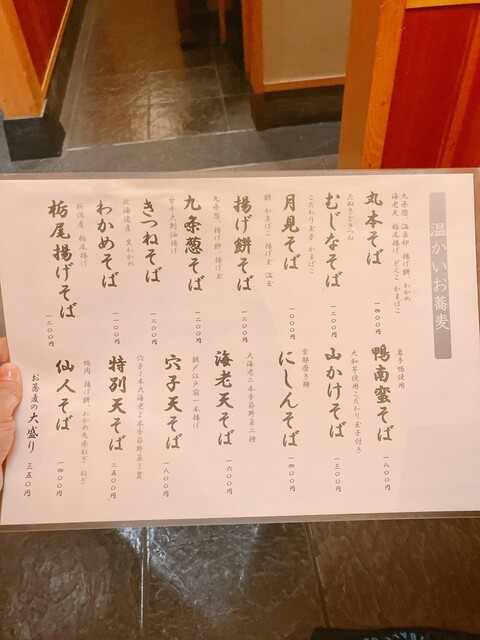 温かいお蕎麦
丸本そば
九条葱 温泉卵 揚げ餅 わかめ
海老天 栃尾揚げ どんこ かまぼこ
一四〇〇円
むじなそば
たぬきときつね
一二〇〇円
月見そば
こだわり玉子 かまぼこ
一〇〇〇円
揚げ餅そば
餅 かまぼこ 揚げ玉 温玉
一二〇〇円
九条葱そば
九条葱 揚げ餅 揚げ玉
一二〇〇円
きつねそば
甘辛大判油揚げ
一二〇〇円
わかめそば
北海道産 生わかめ
一一〇〇円
栃尾揚げそば
新潟産 栃尾揚げ
一二〇〇円
鴨南蛮そば
岩手鴨使用
一八〇〇円
山かけそば
大和芋使用こだわり玉子付き
一三〇〇円
にしんそば
京都磨き鰊
一四〇〇円
海老天そば
大海老二本季節野菜二種
一六〇〇円
穴子天そば
江戸前一本揚げ
一八〇〇円
特別天そば
穴子一本大海老一本季節野菜3貫
二五〇〇円
仙人そば
鴨肉 揚げ餅 わかめ 九条ねぎ
一四〇〇円
お蕎麦の大盛り 三五〇円